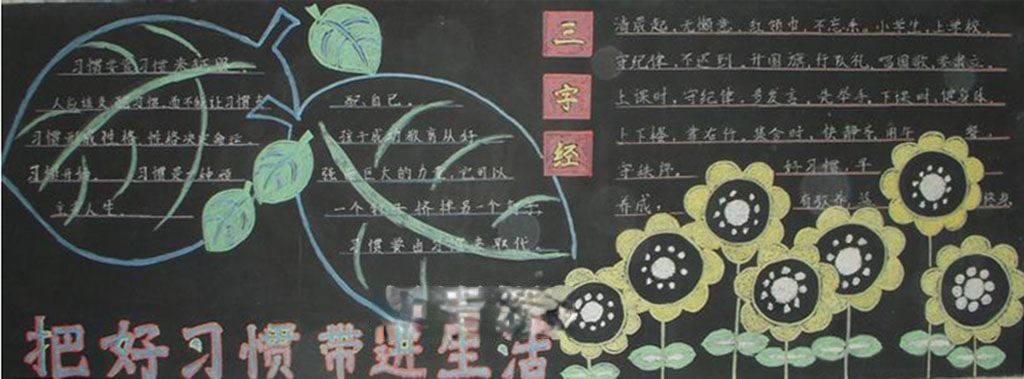 习惯要由习惯来征服。
人应该支配习惯,而不能让习惯支
配自己。
习惯形成性格,性格决定命运。
习惯是一种顽
强而巨大的力量,它可以
主宰人生。
孩子成功教育从好
一个钉子挤掉另一个钉子,
习惯要由习惯来取代。
三字经
清晨起,无懒意,红领巾,不忘系。小学生,上学校,
守纪律,不迟到。升国旗,行队礼,唱国歌,要肃立。
上课时,守纪律,多发言,先举手。下课时,
上下楼,靠右行。集合时,快静齐。用午餐,
守秩序。好习惯,早
养成。有教养,
把好习惯带进生活